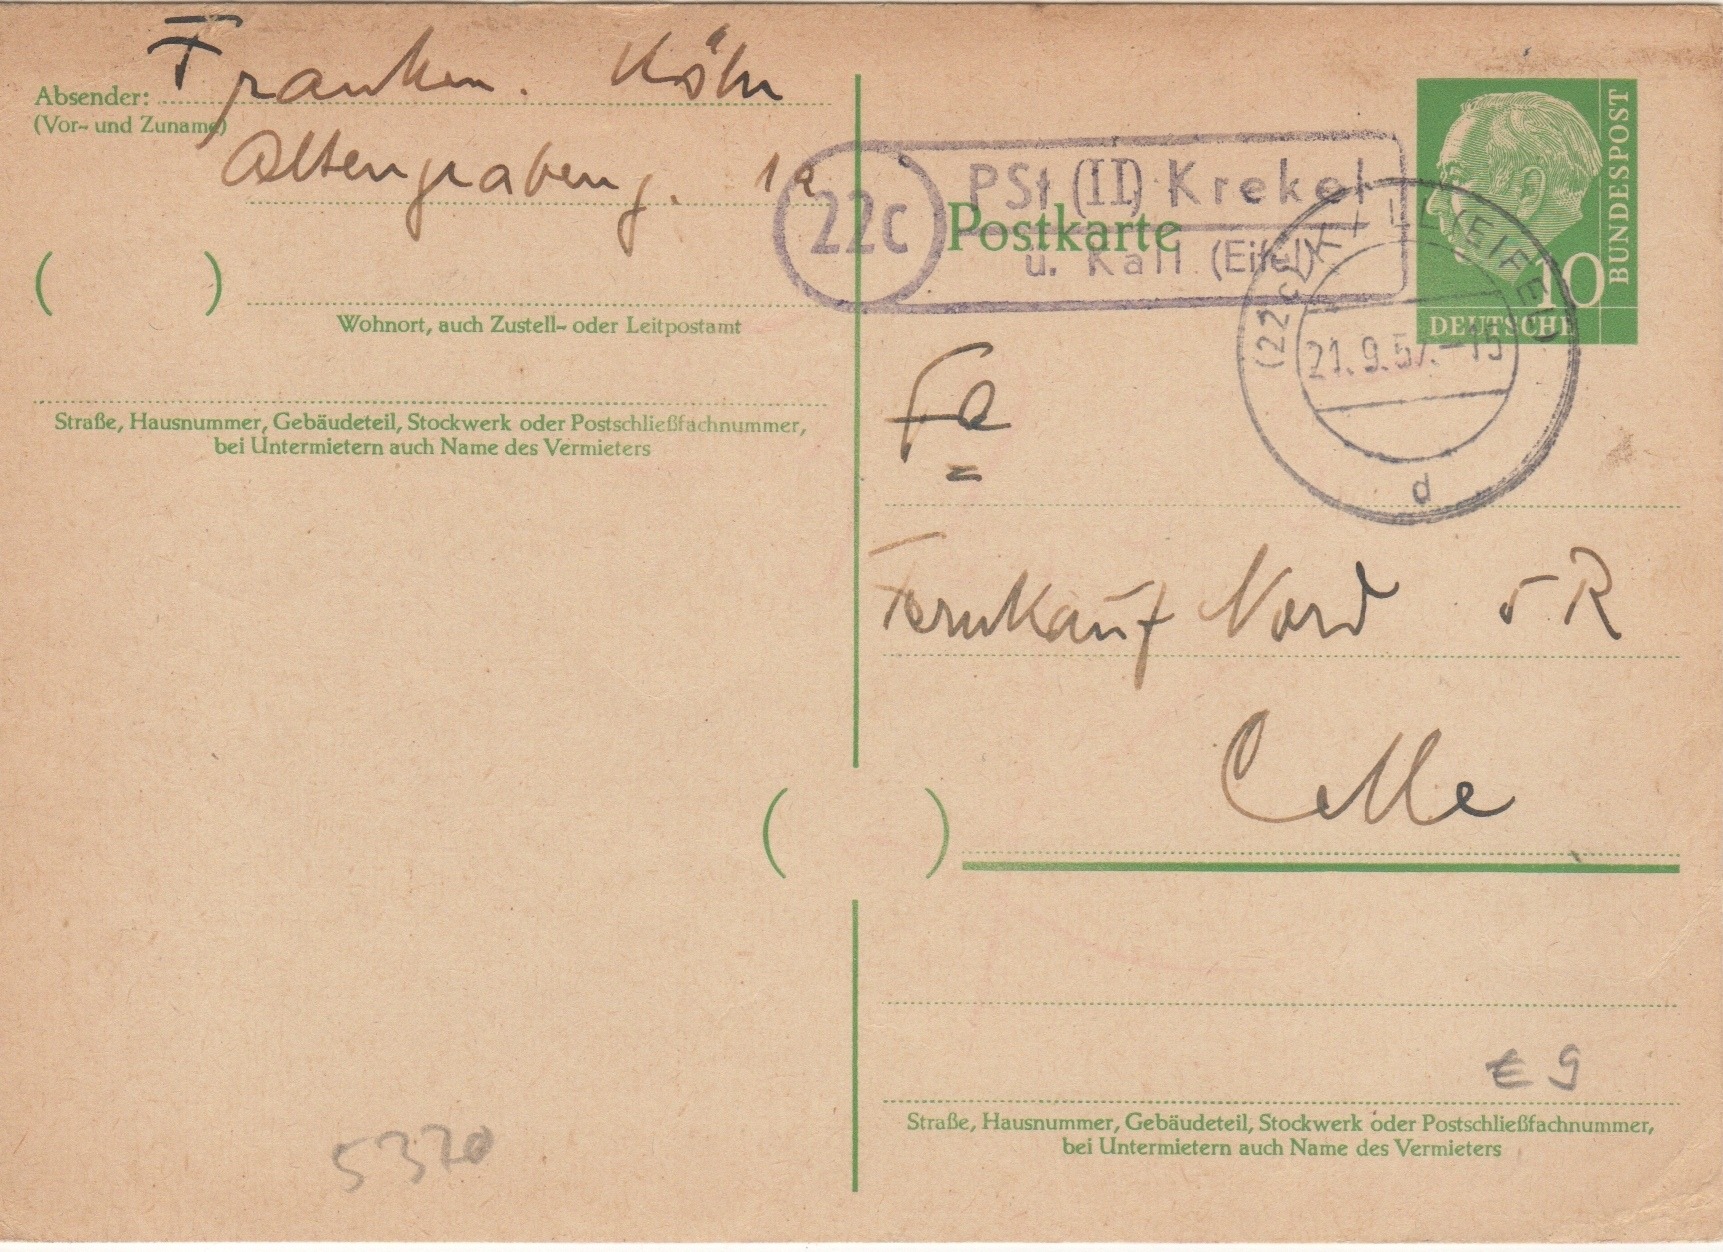 Franken. Köln
Absender:
(Vor- und Zuname)
Altengrabeng. 1a
( )
Wohnort, auch Zustell- oder Leitpostamt
Straße, Hausnummer, Gebäudeteil, Stockwerk oder Postschließfachnummer,
bei Untermietern auch Name des Vermieters
22c
PSt (II) Krekel
ü. Kall (Eifel)
Postkarte
BUNDESPOST
10
DEUTSCHE
(22c) KALL (EIFEL)
21.9.57.-15
d
Fa
Fernkauf Nord
Celle
( )
€ 9
Straße, Hausnummer, Gebäudeteil, Stockwerk oder Postschließfachnummer,
bei Untermietern auch Name des Vermieters
5370